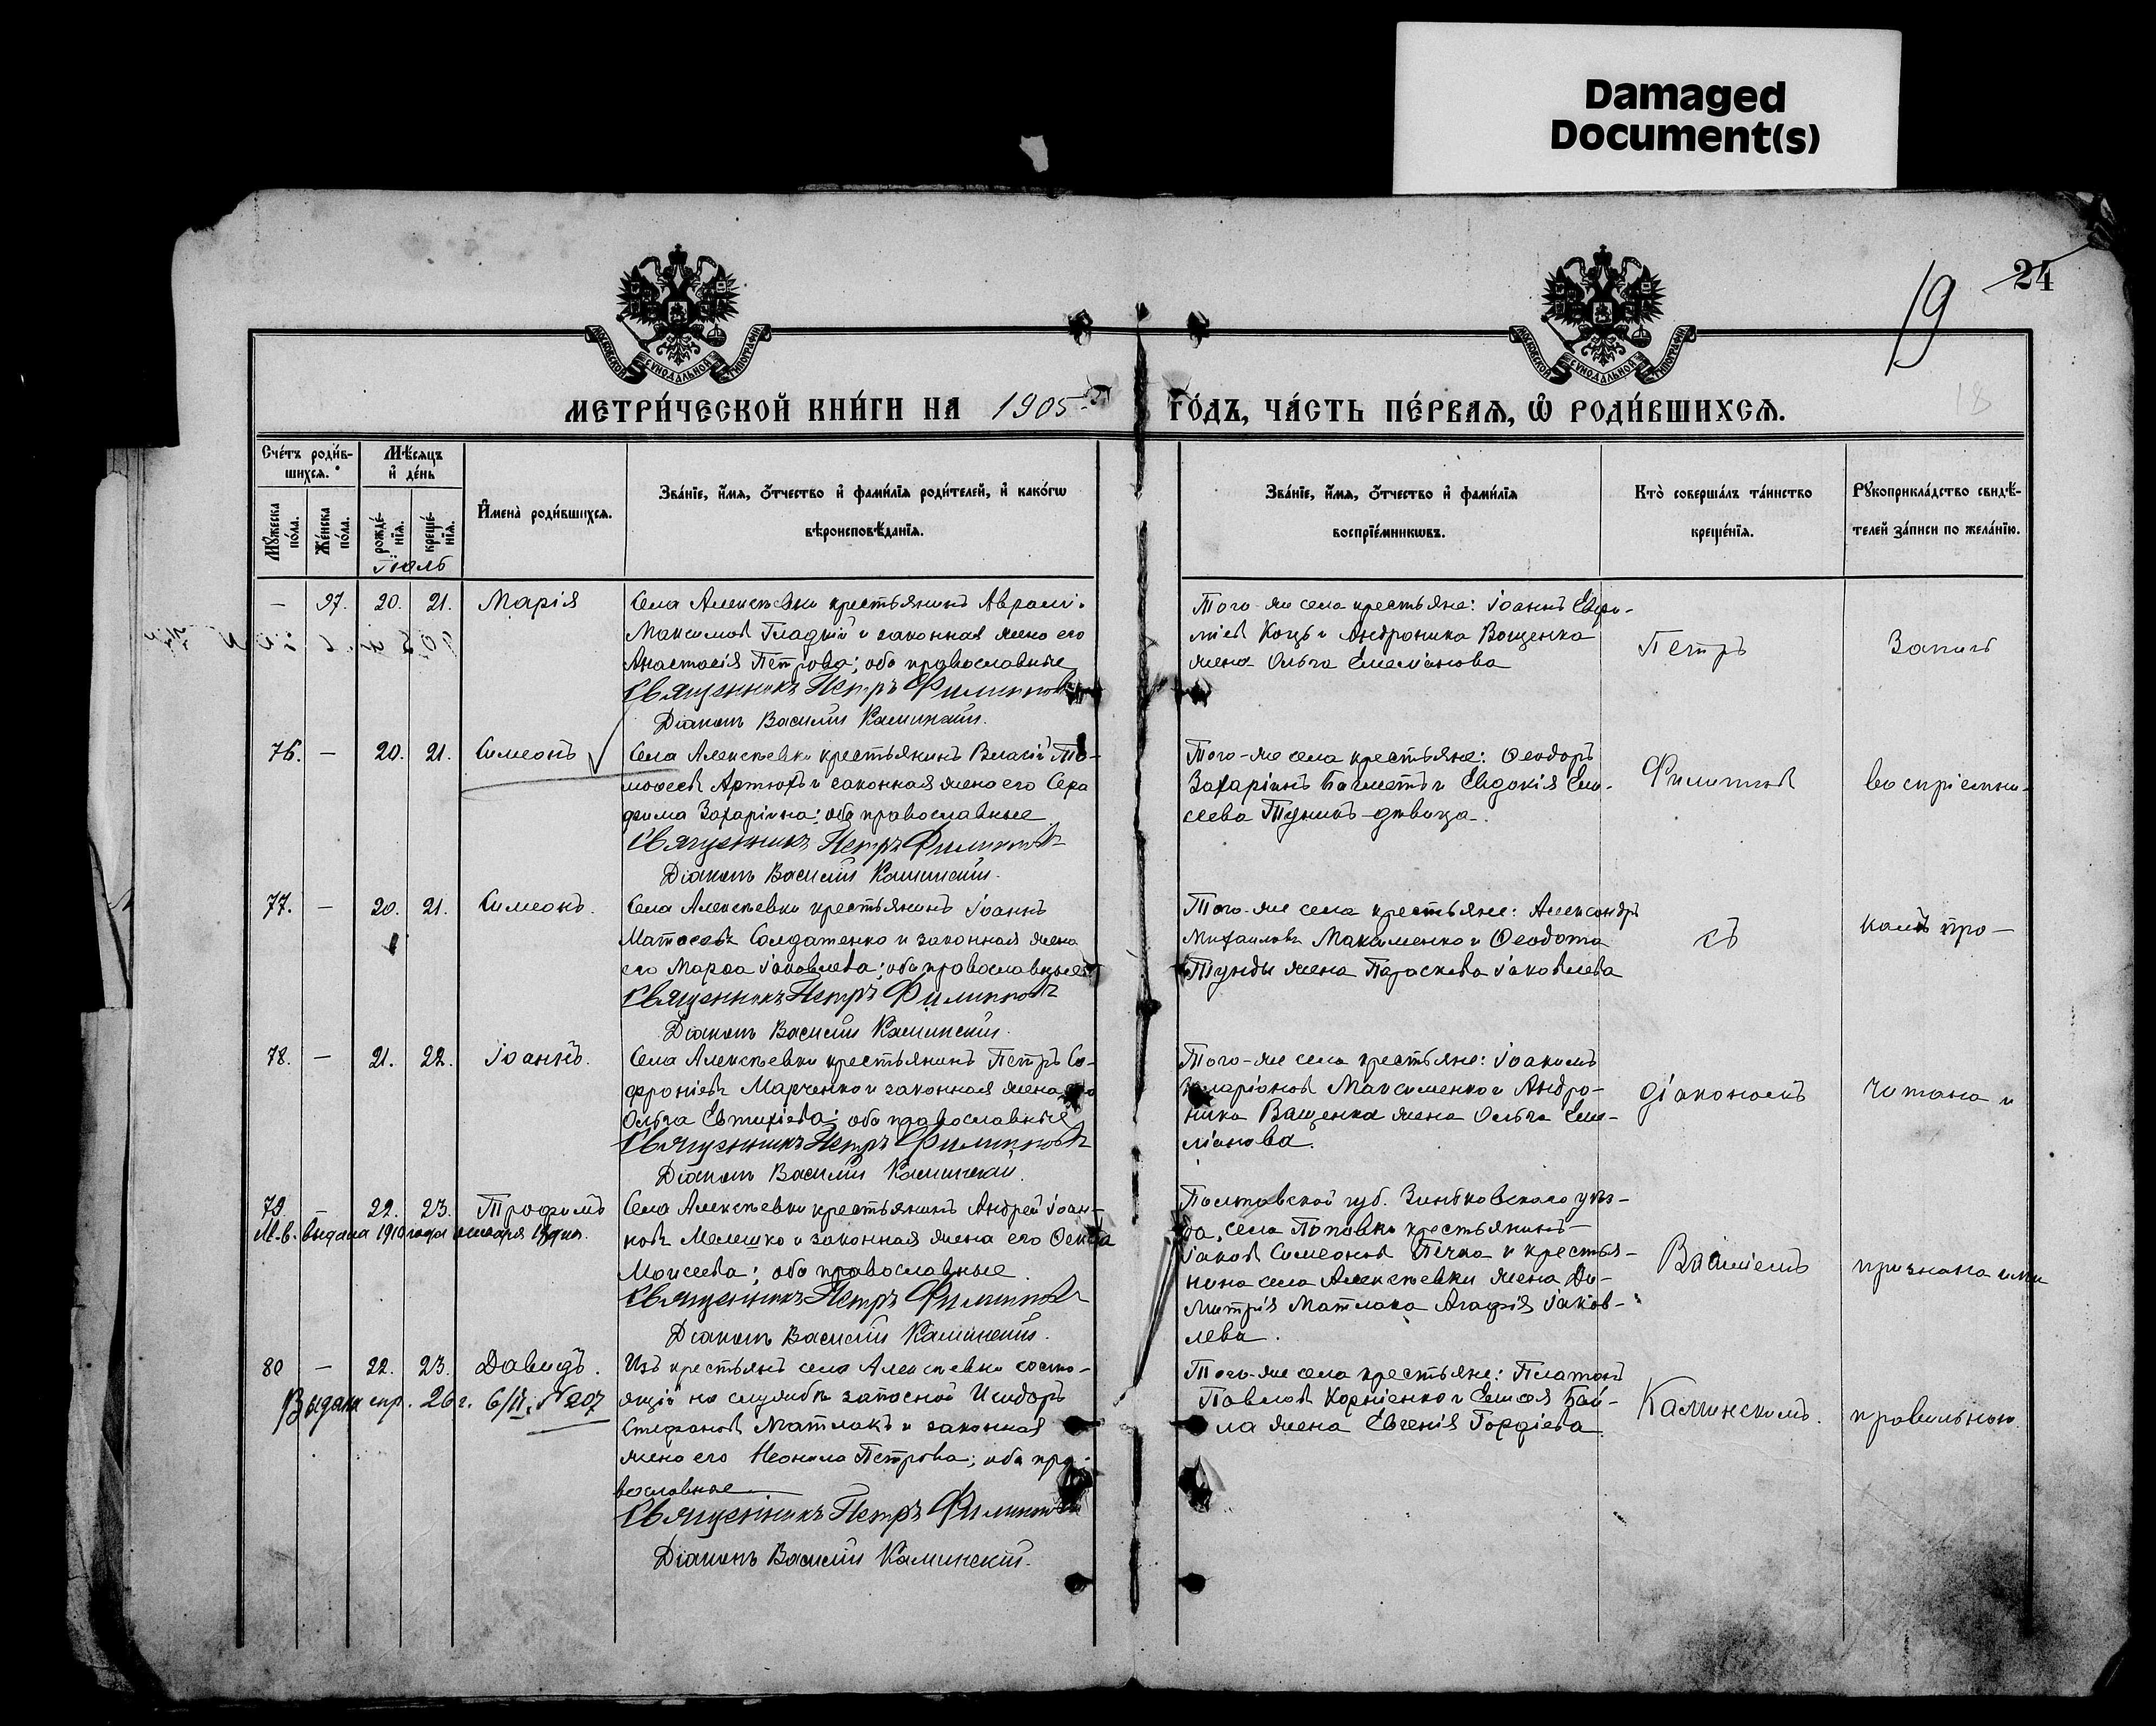 Damaged
Document(s)
24
19
18
МОСКОВСКОЙ СѴНОДАЛЬНОЙ ТИПОГРАФІИ
МОСКОВСКОЙ СѴНОДАЛЬНОЙ ТИПОГРАФІИ
МЕТРИ́ЧЕСКОЙ КНИ́ГИ НА 1905 ГО́ДЪ, ЧА́СТЬ ПЕ́РВАѦ, Ѽ РОДИ́ВШИХСѦ.
Счéтъ роди́в-
шихсѧ.
Мѣ́сѧцъ
и҆ дéнь
Мꙋ́жеска
по́ла.
Же́нска
по́ла.
рожде́-
нїѧ.
креще́-
нїѧ.
И҆мена̀ роди́вшихсѧ.
Зва́нїе, и҆́мѧ, ѻ҆́тчество и҆ фами́лїѧ роди́телей, и҆ како́гѡ
вѣроисповѣ́данїѧ.
Зва́нїе, и҆́мѧ, ѻ҆́тчество и҆ фами́лїѧ
воспрїе́мникѡвъ.
Кто̀ соверша́лъ та́инство
креще́нїѧ.
Рꙋкоприкла́дство свидѣ́-
телей за́писи по жела́нїю.
Іюль
— 97. 20. 21. Марія
Села Алексѣевки крестьянинъ Аврамъ
Максимовъ Гладкій и законная жена его
Анастасія Петрова; оба православные
Священникъ Петръ Филипповъ
Діаконъ Василій Каминскій.
Того-же села крестьяне: Іоаннъ Евфи-
міевъ Коцъ и Андроника Ващенка
жена Ольга Емеліанова
Петръ
Запись
76. — 20. 21. Симеонъ
Села Алексѣевки крестьянинъ Власій Ти-
моѳеевъ Артюхъ и законная жена его Сера
фима Захаріина; оба православные
Священникъ Петръ Филипповъ
Діаконъ Василій Каминскій.
Того-же села крестьяне: Ѳеодоръ
Захаріинъ Багметъ и Евдокія Ели-
сеева Туникъ-дѣвица.
Филипповъ
воспріемни-
77. — 20. 21. Симеонъ.
Села Алексѣевки крестьянинъ Іоаннъ
Матѳеевъ Солдатенко и законная жена
его Марѳа Іаковлева; оба православные
Священникъ Петръ Филипповъ
Діаконъ Василій Каминскій.
Того-же села крестьяне: Александръ
Михаиловъ Максименко и Ѳеодота
Тунды жена Параскева Іаковлева
съ
камъ про-
78. — 21. 22. Іоаннъ.
Села Алексѣевки крестьянинъ Петръ Со-
фроніевъ Марченко и законная жена его
Ольга Евтихіева; оба православные
Священникъ Петръ Филипповъ
Діаконъ Василій Каминскій.
Того-же села крестьяне: Іоакимъ
Иларіоновъ Максименко и Андро-
ника Ващенка жена Ольга Еме-
ліанова.
діакономъ
читана и
79. — 22. 23. Трофимъ
М.-в. выдана 1910 года января 19 дня.
Села Алексѣевки крестьянинъ Андрей Іоан-
новъ Мелешко и законная жена его Ѳекла
Моисеева; оба православные.
Священникъ Петръ Филипповъ
Діаконъ Василій Каминскій.
Полтавской губ. Зиньковскаго уѣз-
да, села Поповки крестьянинъ-
Іаковъ Симеоновъ Печка и крестья-
нина села Алексѣевки жена Ди-
митрія Матлака Агафія Іаков-
лева.
Василіемъ
признана ими
80 — 22. 23. Давидъ.
Выдана спр. 26 г. 6/II. № 207
Изъ крестьянъ села Алексѣевки состо-
ящій на службѣ запасной Исидоръ
Стефановъ Матлакъ и законная
жена его Неонила Петрова; оба пра-
вославные
Священникъ Петръ Филипповъ
Діаконъ Василій Каминскій.
Того-же села крестьяне: Платонъ
Павловъ Корніенко и Елисея Бай-
ла жена Евгенія Гордіева.
Каминскимъ.
правильною